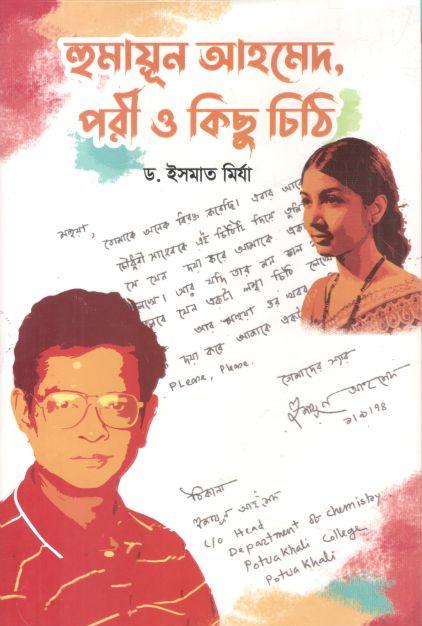 হুমায়ূন আহমেদ,
পরী ও কিছু চিঠি
ড. ইসমাত মির্যা
তোমাকে অনেক বিরক্ত করেছি। এবার আরে
চৌধুরী সাহেবকে এই চিঠিটি দিয়ে তুমি
সে যেন দয়া করে আমাকে একটা
লেখে। আর যদি তার মন ভাল
যেন একটা লম্বা চিঠি লেখে
আর ওর খবর
দয়া করে আমাকে একটা
Please, Please.
তোমাদের স্যার
হুমায়ূন আহমেদ
ঠিকানা
হুমায়ূন আহমেদ
C/O Head
Department of Chemistry
Potua Khali College
Potua Khali